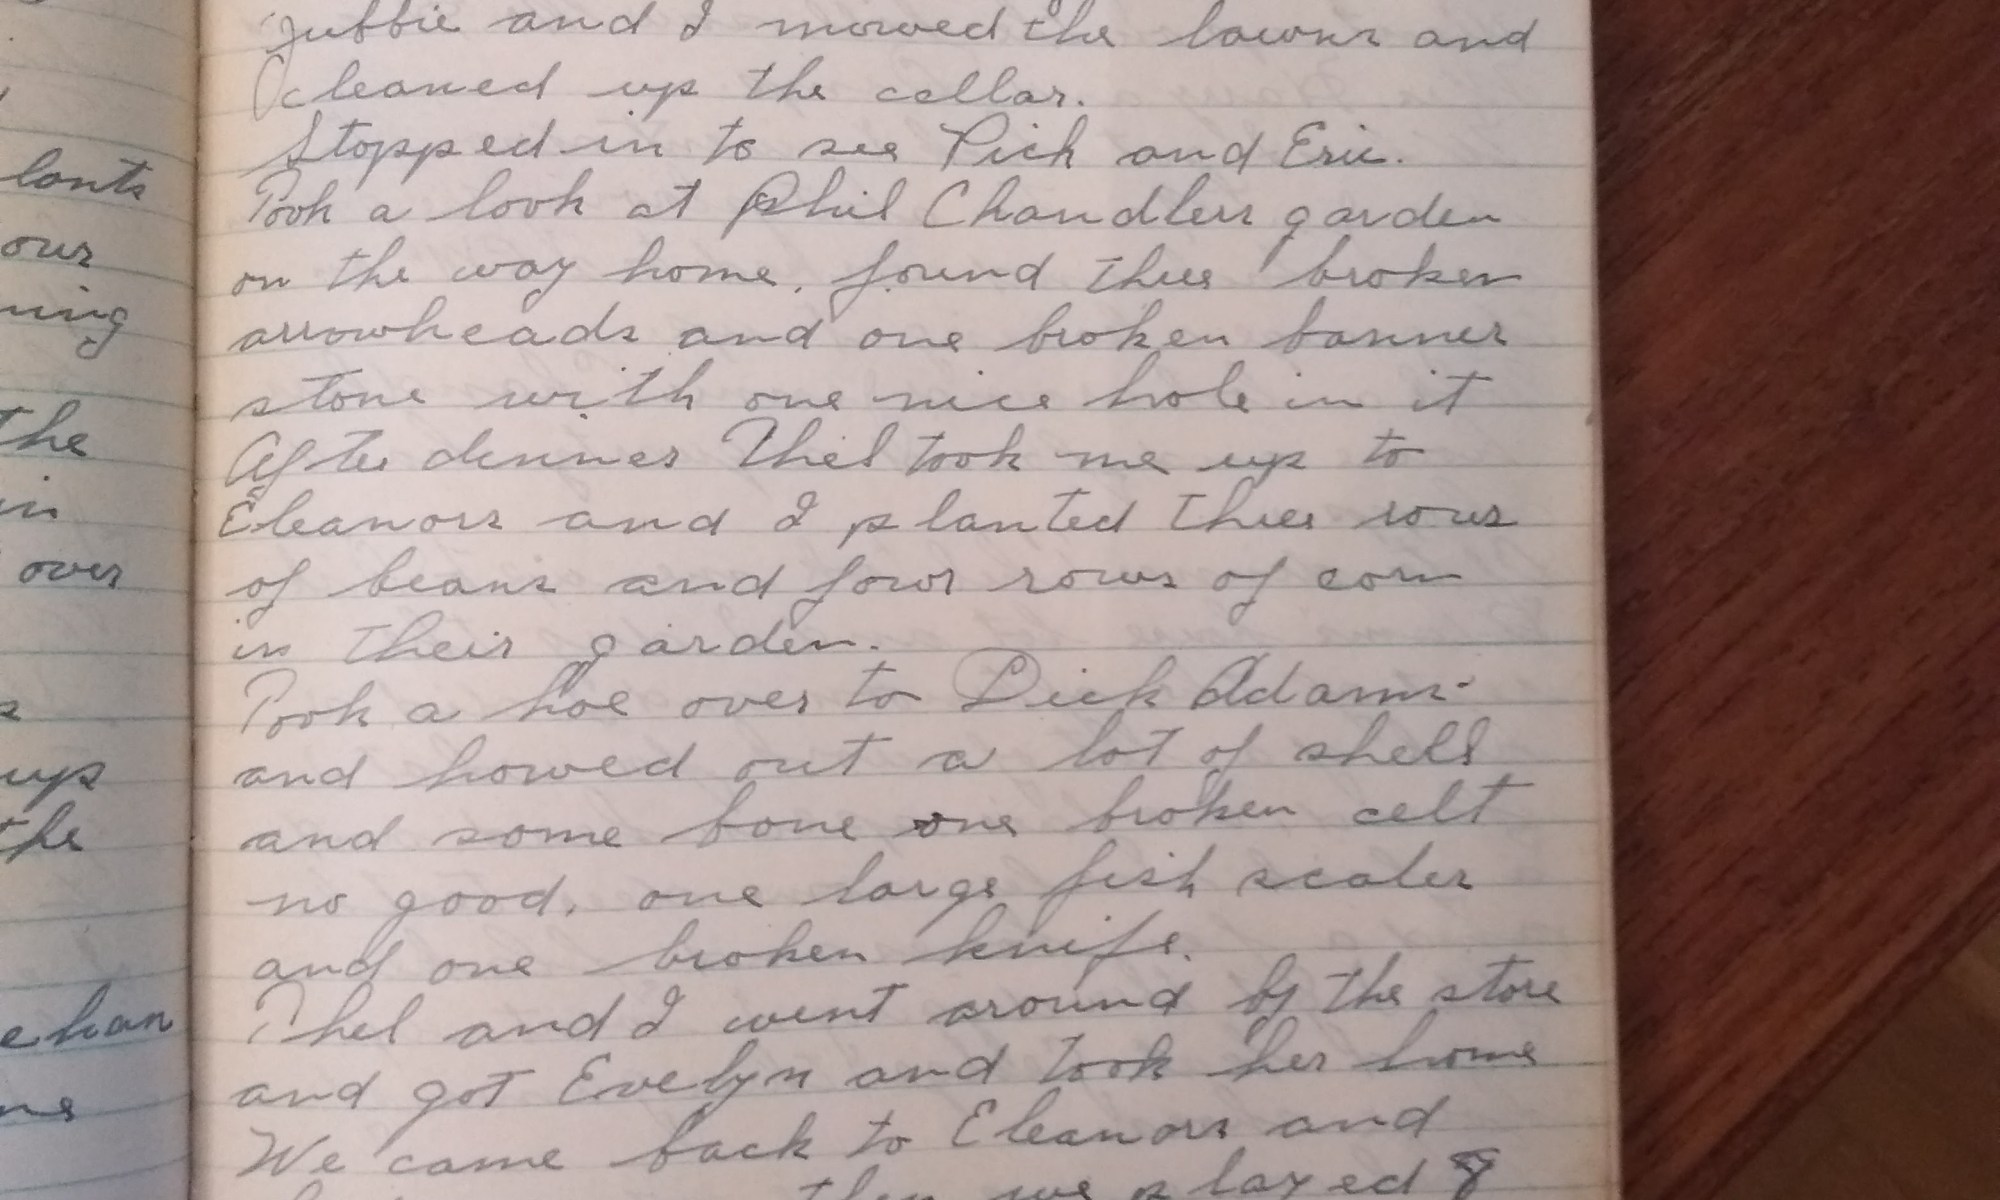 lants
our
ning
the
in
over
s
ups
the
ehan
ne
Jubbie and I mowed the lawns and
cleaned up the cellar.
Stopped in to see Pick and Eric.
Took a look at Phil Chandlers garden
on the way home. found three broken
arrowheads and one broken banner
stone with one nice hole in it
After dinner Thel took me up to
Eleanors and I planted three rows
of beans and four rows of corn
in their garden.
Took a hoe over to Dick Adams
and howed out a lot of shell
and some bone one broken celt
no good. one large fish scaler
and one broken knife.
Thel and I went around by the store
and got Evelyn and took her home
We came back to Eleanors and
then we played 8